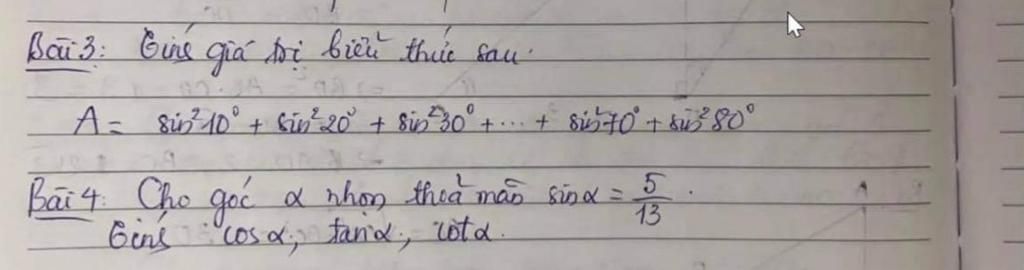 Bài 3: Tính giá trị biểu thức sau.
A = sin²10° + sin²20° + sin²30° + ... + sin²70° + sin²80°
Bài 4: Cho góc α nhọn thoả mãn sinα = 5/13.
Tính cosα; tanα; cotα.